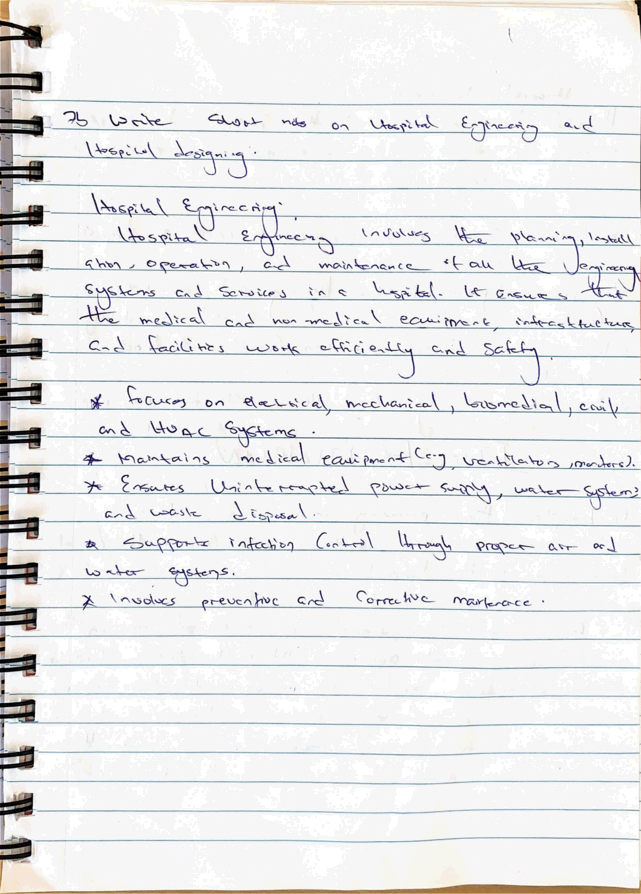 7b Write Short notes on Hospital Engineering and
Hospital designing.
Hospital Engineering:
Hospital Engineering involves the planning, install
ation, operation, and maintenance of all the engineering
systems and services in a hospital. It ensures that
the medical and non medical equipment, infrastructure,
and facilities work efficiently and safely.
* Focuses on electrical, mechanical, biomedical, civil
and HVAC Systems.
* Maintains medical equipment (e.g, ventilators, monitors).
* Ensures Uninterrupted power supply, water systems
and waste disposal.
* Supports infection Control through proper air and
water systems.
* Involves preventive and Corrective maintenance.